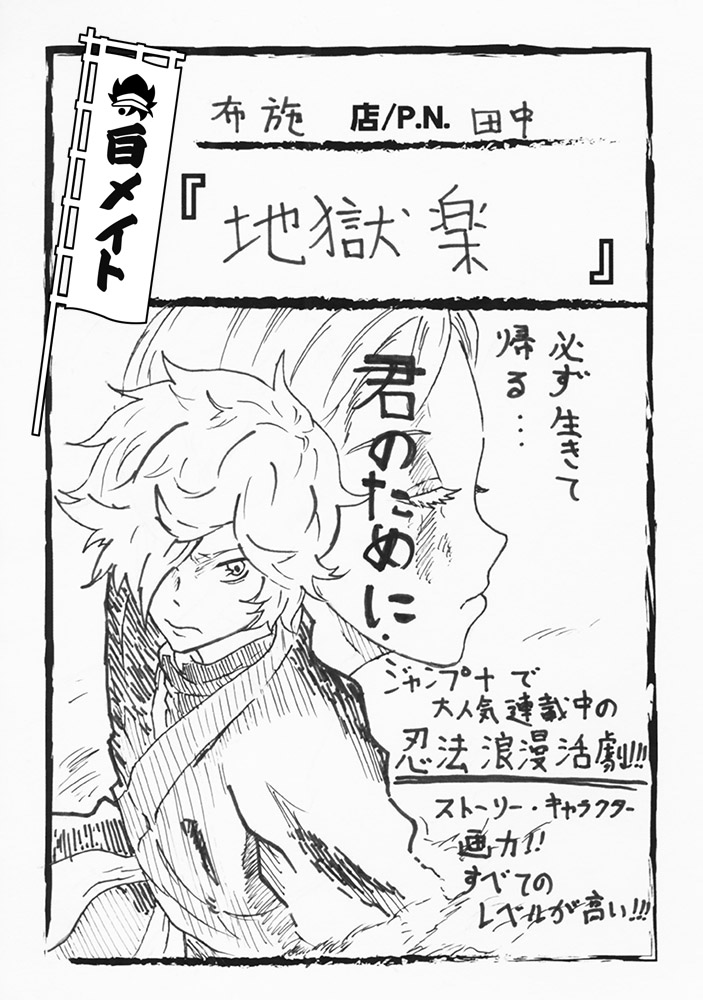 百メイト
布施 店/P.N. 田中
『地獄楽』
必ず生きて
帰る…
君のために.
ジャンプ+で
大人気連載中の
忍法浪漫活劇!!!
ストーリー・キャラクター
画力!!
すべての
レベルが高い!!!